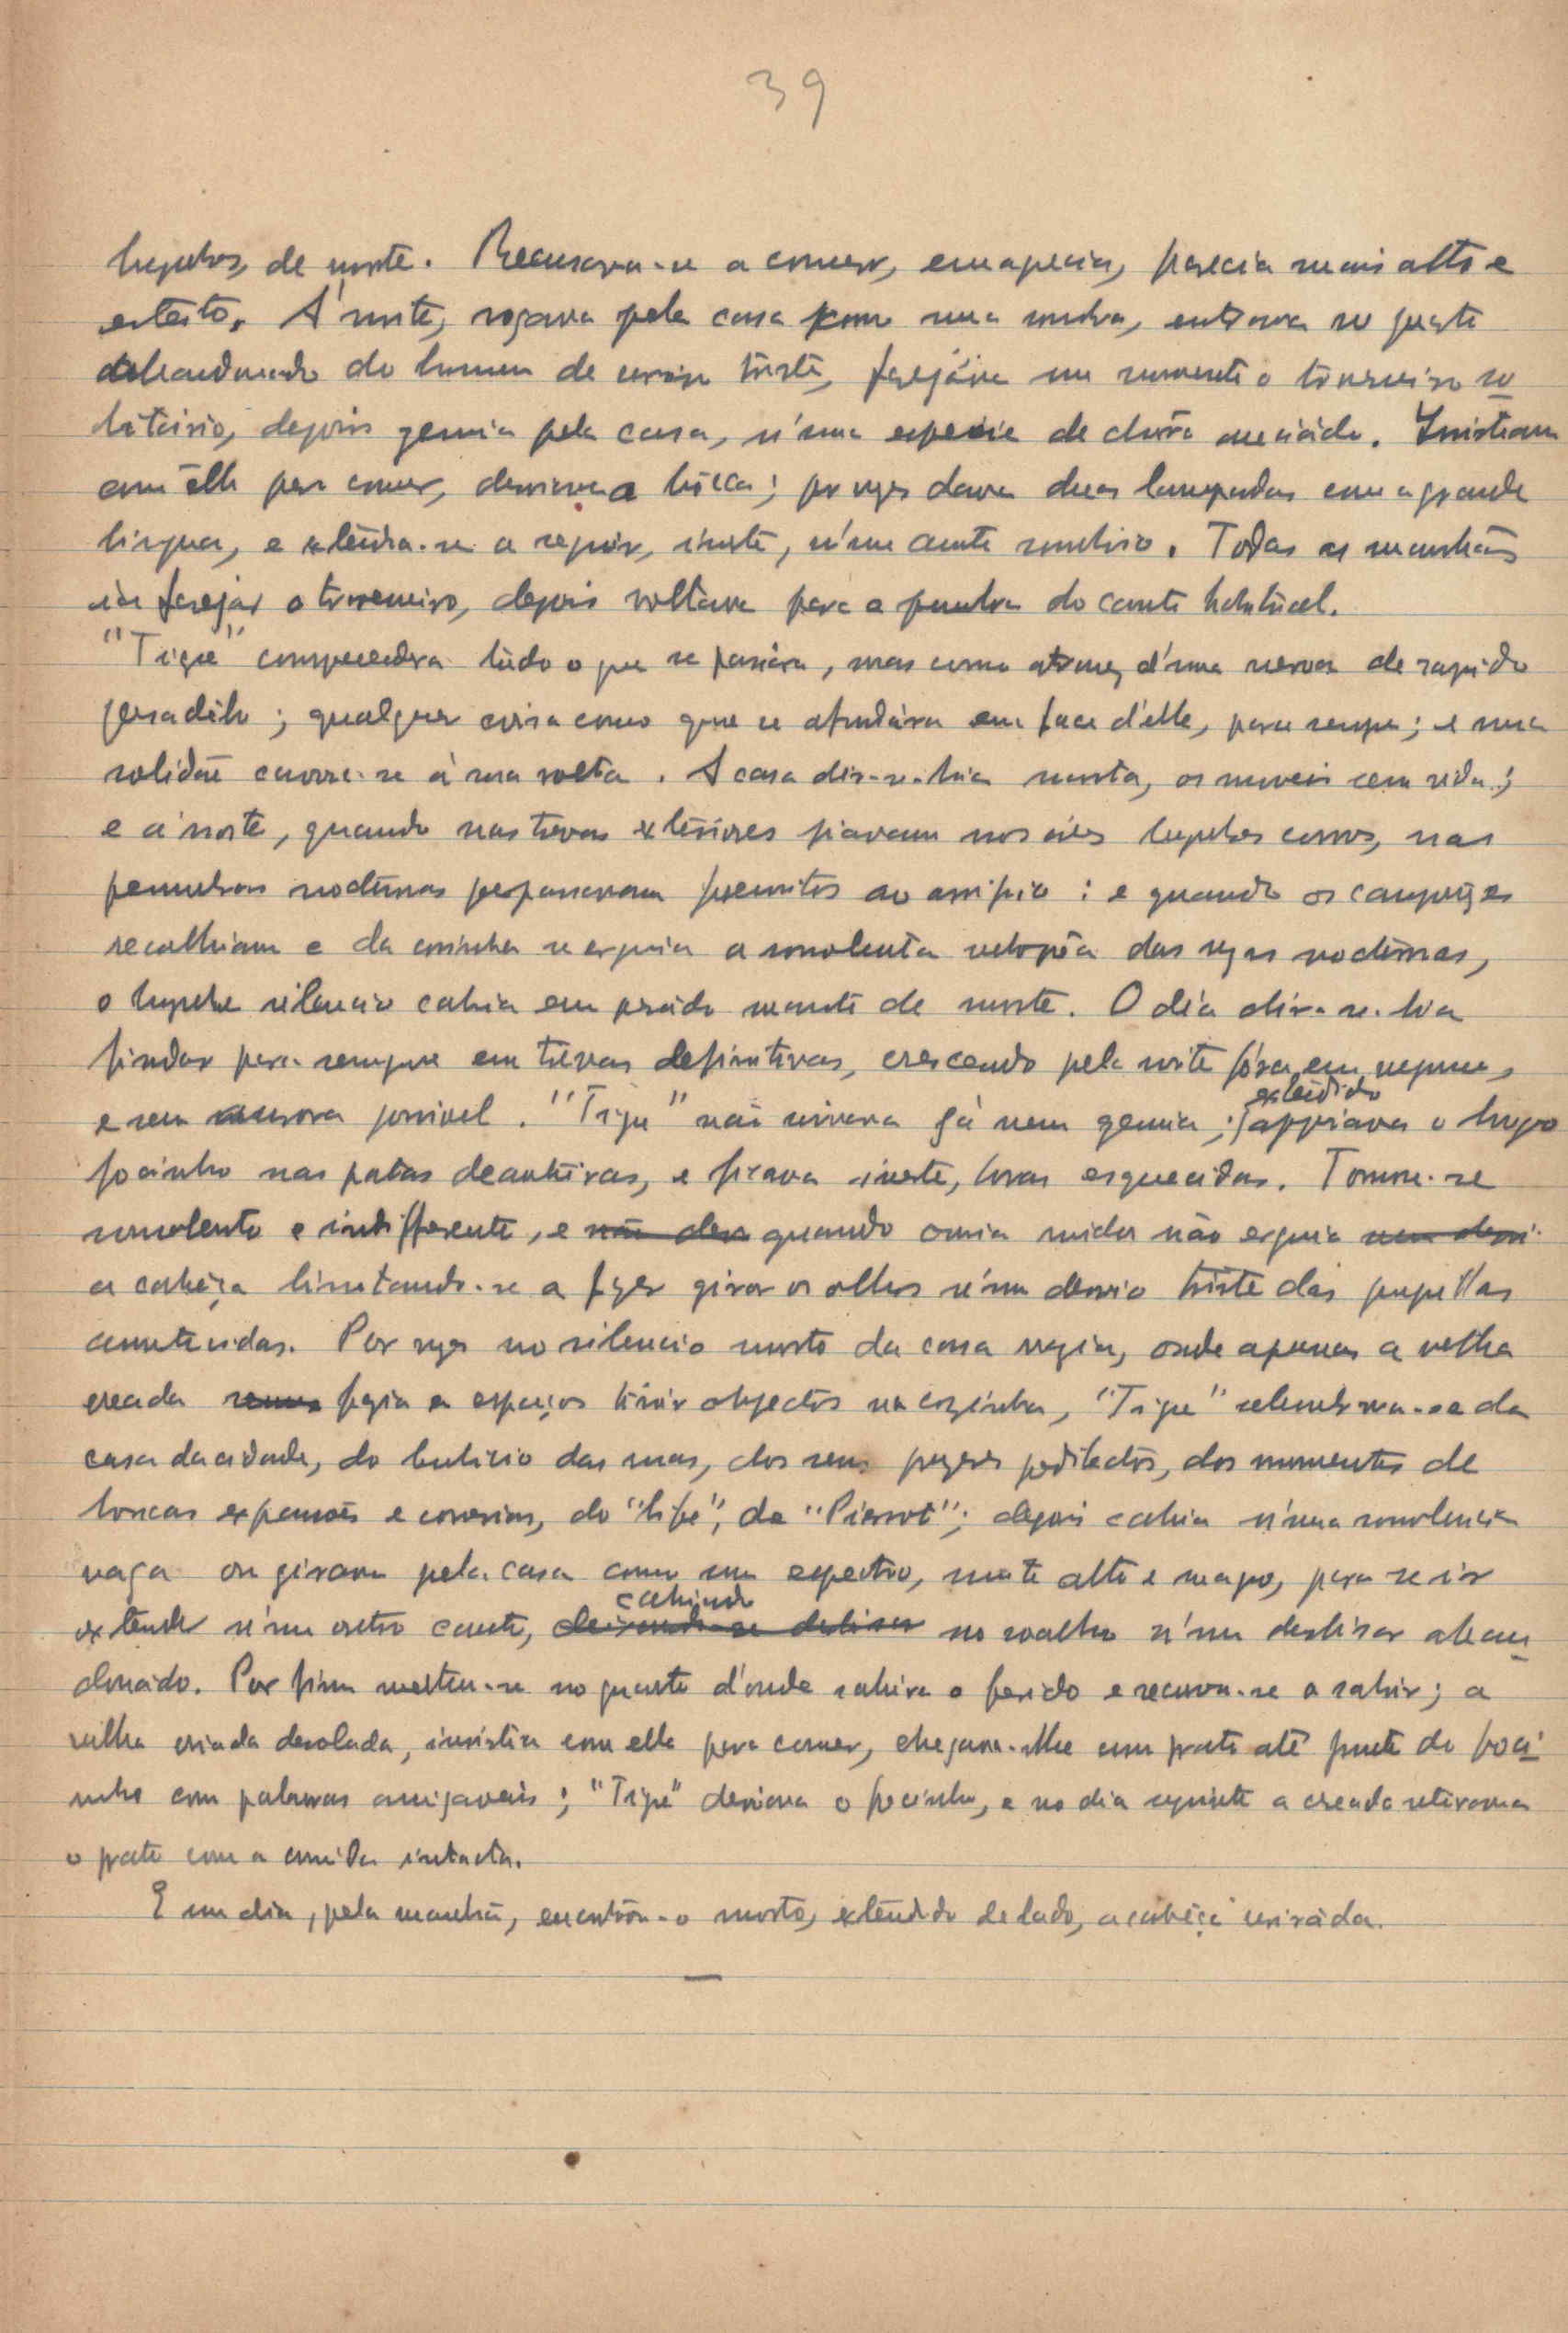 39
lugubres, de morte. Recusava-se a comer, emagrecia, parecia mais alto e
estreito. Á noite, rogava pela casa como uma sombra, entrava no quarto
abandonado do homem de serviço triste, farejáva um momento o travesseiro so
litário, depois gemia pela casa, n'uma especie de chôro anciádo. Insistiam
com êlle para comer, desviava a bôcca; por vezes dava duas lampadas com a grande
lingua, e extendia-se a seguir, inerte, n'um canto sombrio. Todas as manhãs
ia farejar o travesseiro, depois voltava para a penumbra do canto habitual.
"Tigre" comprehendera tudo o que se passára, mas como atravez d'uma nevoa de rapido
pesadêlo; qualquer coisa como que se afundára em face d'elle, para sempre; e uma
solidão cavou-se á sua volta. A casa dir-se-hia morta, os moveis sem vida;
e á noite, quando nas trevas exteriores piavam nos áres lugubres corvos, nas
penumbras nocturnas perpassavam frémitos ao arripio: e quando os camponezes
recolhiam e da cosinha se erguia a sonolenta melopêa das rezas nocturnas,
o lugubre silencio cahia em pesádo manto de morte. O dia dir-se-hia
findar para sempre em trévas definitivas, crescendo pela noite fóra, em negrume,
e sem aurora possivel. "Tigre" não uivava já nem gemia; extendido
apoiava o longo
focinho nas patas deanteiras, e ficava inerte, horas esquecidas. Tornou-se
sonolento e indifferente, e não dava quando ouvia ruidos não erguia nem desvi-
a cabeça limitando-se a fazer girar os olhos n'um desvio triste das pupillas
amortecidas. Por vezes no silencio morto da casa vazia, onde apenas a velha
creada fazia a espaços tinir objectos na cozinha, "Tigre" relembrava-se da
casa da cidade, do bulicio das ruas, dos seus prazeres predilectos, dos momentos de
loucas expansões e correrias, do "Life", da "Pierrot"; depois cahia n'uma sonolencia
vaga ou girava pela casa como um espectro, muito alto e magro, para se ir
extender n'um outro canto, deixando-se deslisar cahindo no soalho n'um deslisar aban
donado. Por fim metteu-se no quarto d'onde sahira o ferido e recusou-se a sahir; a
velha criada desolada, insistia com elle para comer, chegava-lhe um prato até perto do foci
nho com palavras amigaveis; "Tigre" desviava o focinho, e no dia seguinte a creada retirava
o prato com a comida intacta.
E um dia, pela manhã, encontrou-o morto, extendido de lado, a cabeça virada.